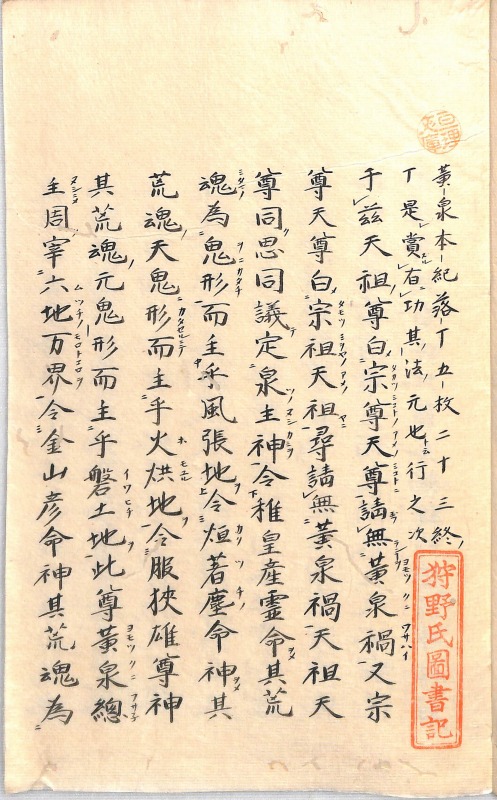 黄泉本紀落丁五枚二十三終
丁是賞有功其法元也行之次
于茲天祖尊白宗尊天尊請無黄泉禍又宗
尊天尊白宗祖天祖尋請無黄泉禍天祖天
尊同思同議定泉主神令稚皇産霊命其荒
魂為鬼形而主乎風張地令烜著塵命神其
荒魂天鬼形而主乎火烘地令服狭雄尊神
其荒魂元鬼形而主乎磐土地此尊黄泉総
主周宰六地万界令金山彦命神其荒魂為
狩野氏圖書記